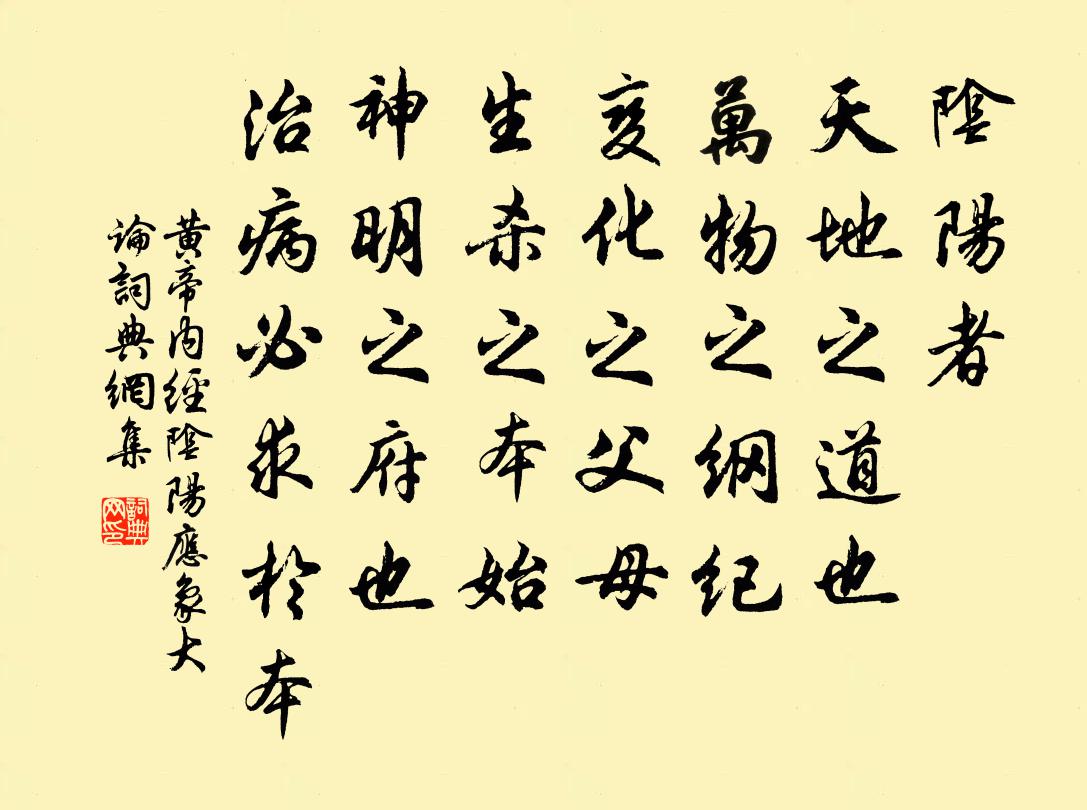 陰陽者
天地之道也
萬物之綱纪
变化之父母
生杀之本始
神明之府也
治病必求於本
黄帝内經陰陽應象大
論詞典網集
詞典
网印